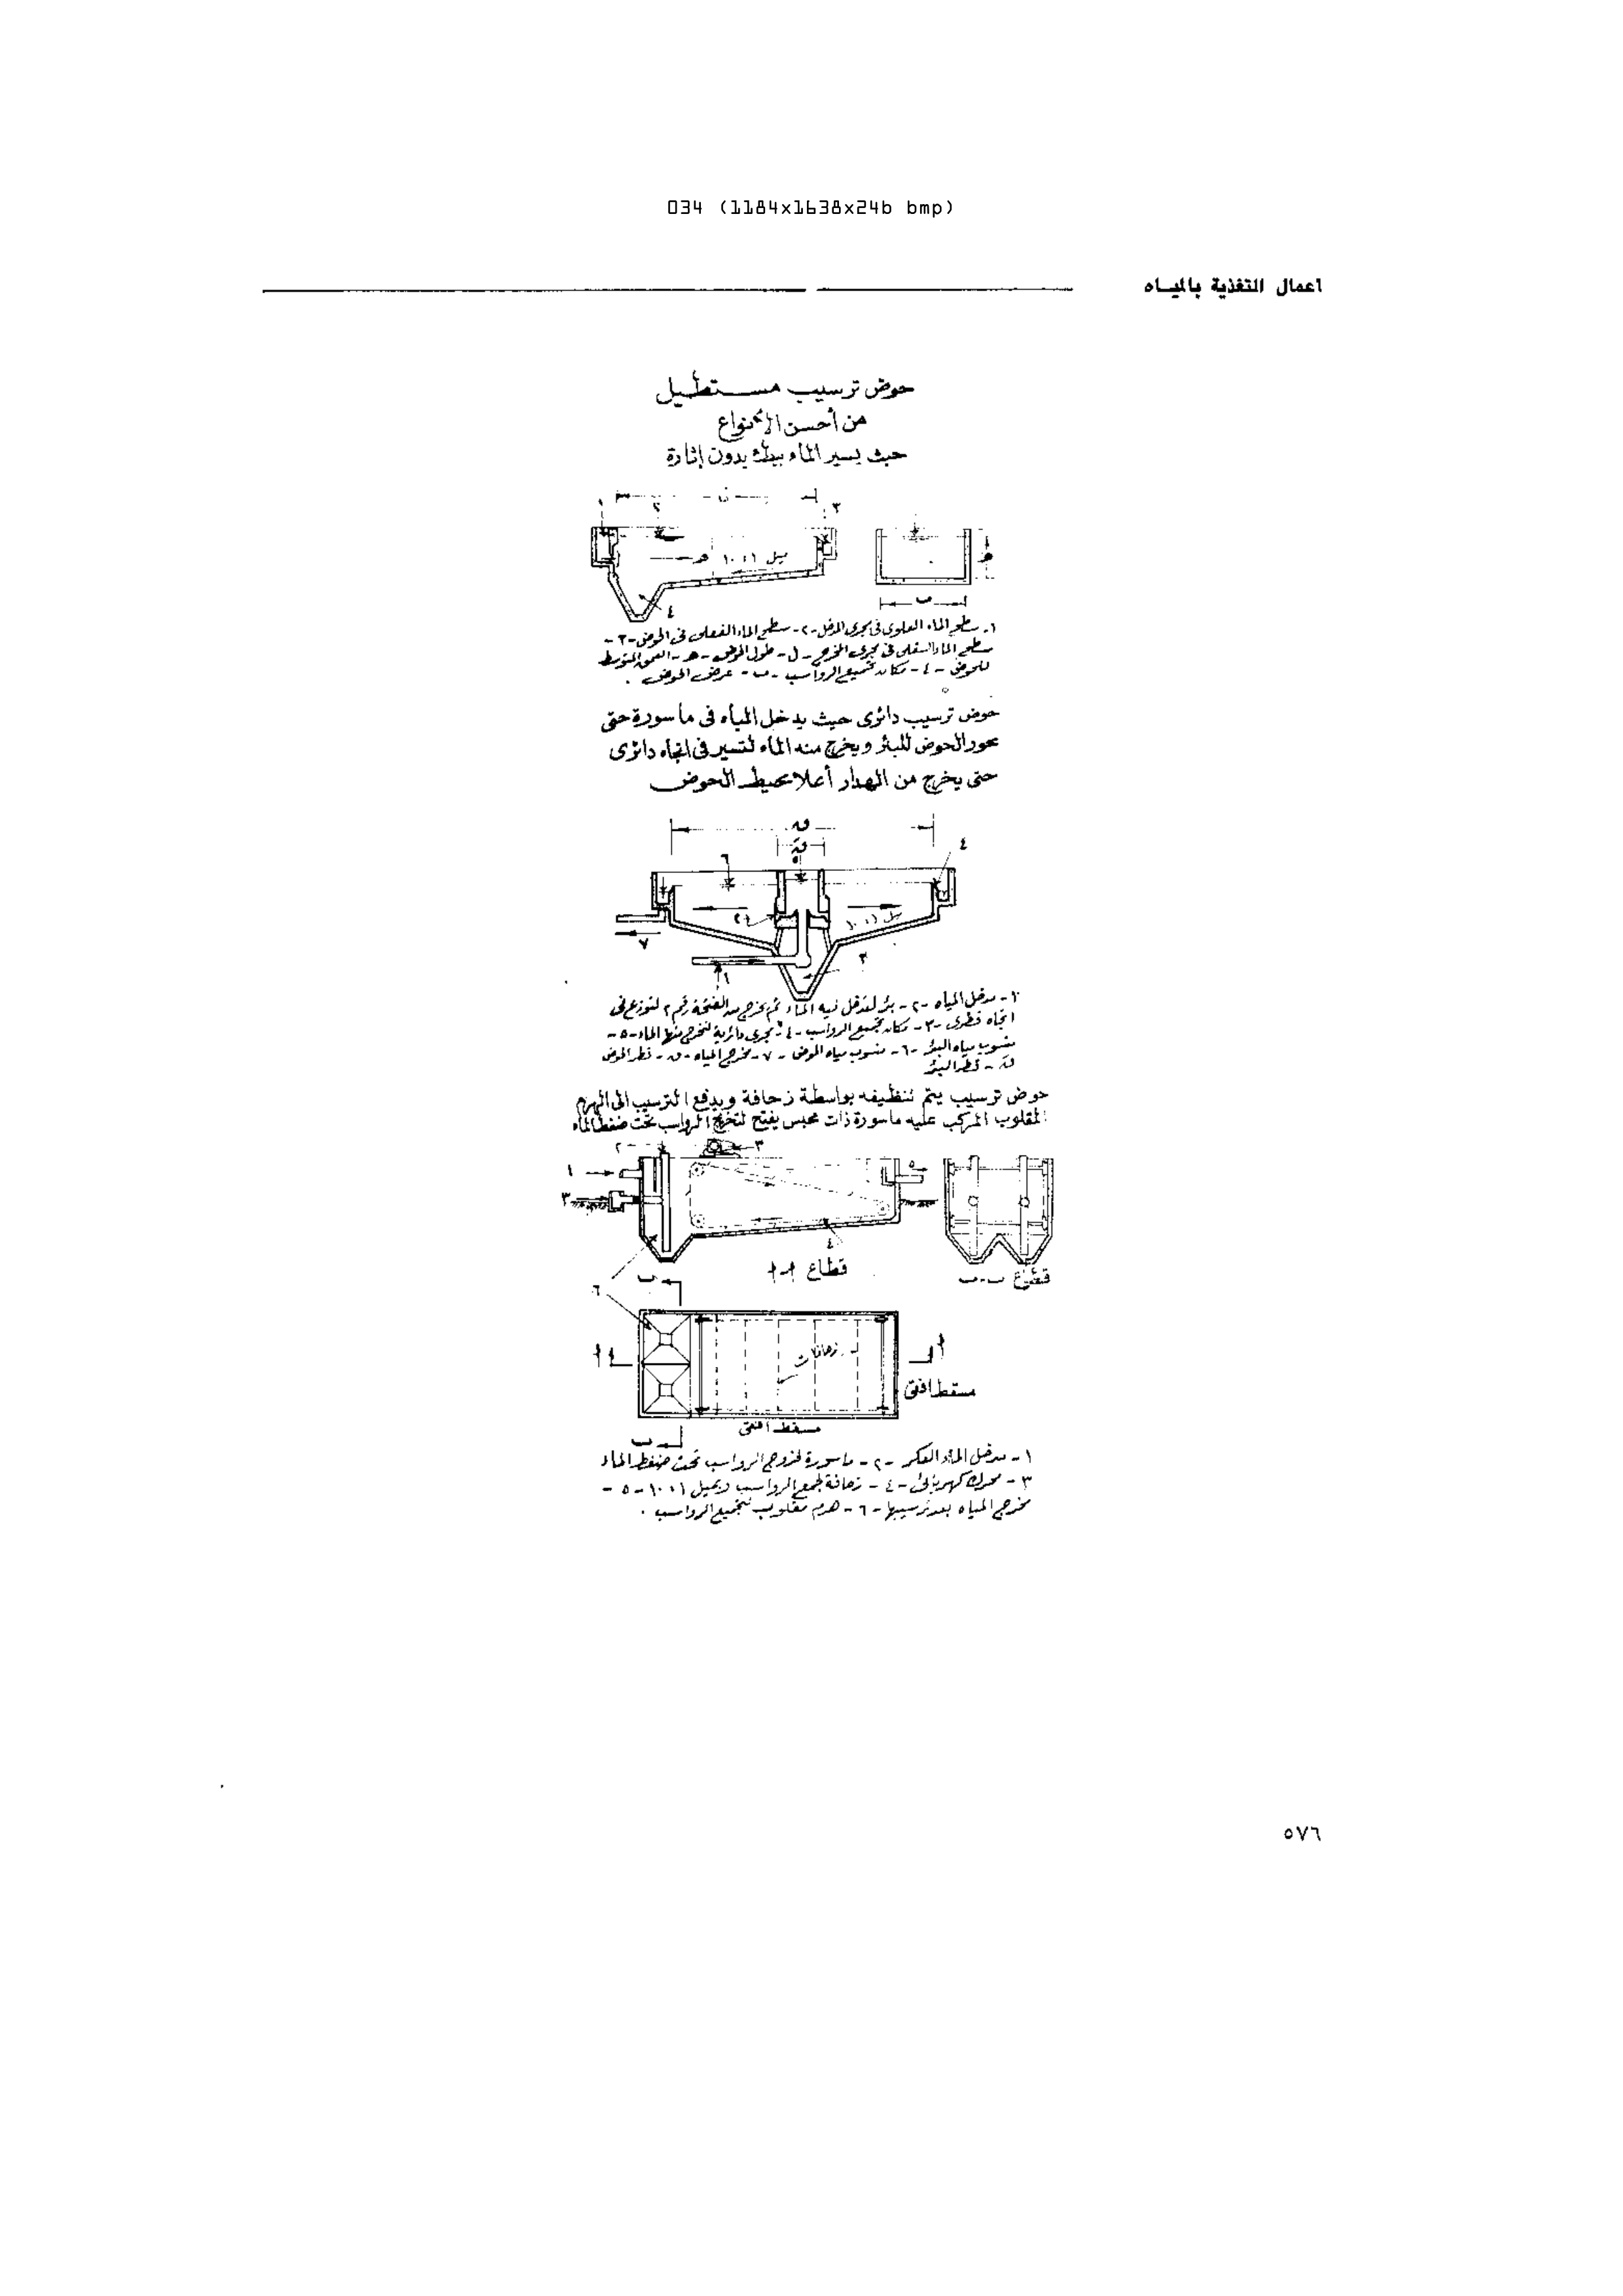 034 (1184x1638x24b bmp)
اعمال التغذية بالميـاه
حوض ترسيب مستطيل
من أحسن الأنواع
حيث يسير الماء ببطء بدون إثارة
١ ٢ ٣
ميل ١٠،١ هـ
٤
ب
١- سطح الماء العلوى فى مجرى المدخل -٢- سطح الماء الفعلى فى الحوض -٣-
سطح الماء السفلى فى مجرى المخرج - ل - طول الحوض - هـ - العمق المتوسط
للحوض -٤- مكان تجميع الرواسب - ب - عرض الحوض .
حوض ترسيب دائرى حيث يدخل المياه فى ماسورة حتى
محور الحوض للبئر ويخرج منه الماء لتسير فى اتجاه دائرى
حتى يخرج من الهدار أعلا محيط الحوض
ق
ق
٤
٦ ٥
٢
٧
٣
١
١- مدخل المياه -٢- بئر لتدخل فيه الماء ثم يخرج من الفتحة رقم ٢ لتوزع فى
اتجاه قطرى -٣- مكان تجميع الرواسب -٤- مجرى دائرية لتخرج منها الماء -٥-
منسوب مياه البئر -٦- منسوب مياه الحوض -٧- مخرج المياه - ق - قطر الحوض
ق - قطر البئر
حوض ترسيب يتم تنظيفه بواسطة زحافة ويدفع الترسيب الى الهرم
المقلوب المركب عليه ماسورة ذات محبس يفتح لتخرج الرواسب تحت ضغط الماء
٢ ٣
١ ٥
٣
٤
قطاع أ-أ
قطاع ب-ب
٦ ب
زحافات
أ أ
مسقط افقى
مسقط افقى
ب
١- مدخل الماء العكر -٢- ماسورة لخروج الرواسب تحت ضغط الماء
٣- محرك كهربائى -٤- زحافة لجمع الرواسب وبميل ١٠،١ -٥-
مخرج المياه بعد ترسيبها -٦- هرم مقلوب لتجميع الرواسب .
٥٧٦